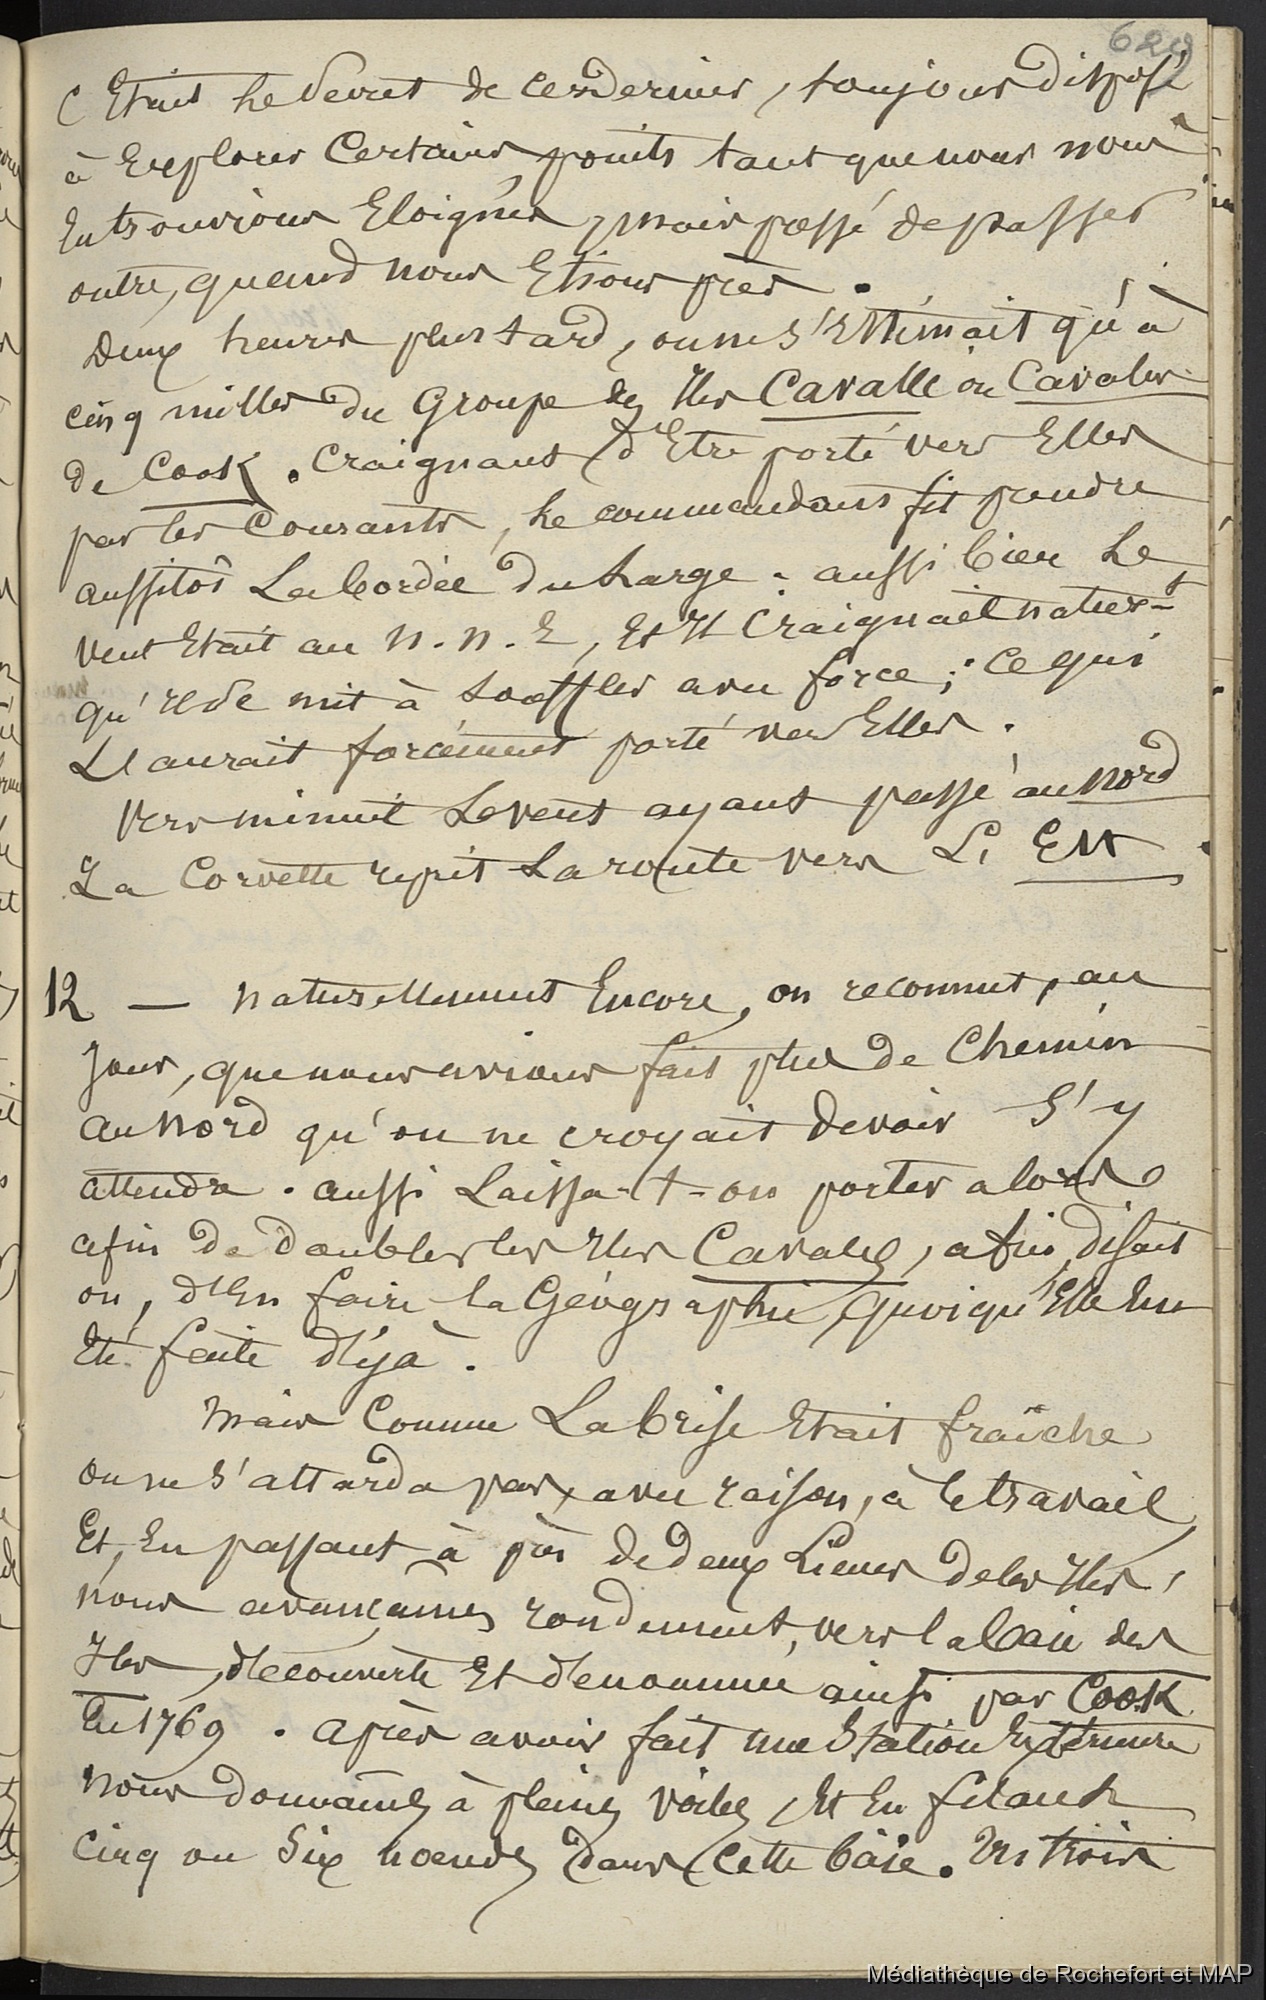 629
C'Etait le secret de ces derniers, toujours disposé
à Explorer Certains points tant que nous nous
En trouvions Eloignés, mais pressé de passer
outre, quand nous Etions près.
Deux heures plus tard, on ne s'Estimait qu'à
cinq milles du Groupe des Iles Cavalle ou Cavales
de Cook. Craignant d'Etre porté vers Elles
par les Courants, le commandant fit prendre
aussitôt La bordée du Large. aussi bien Le
Vent Etait au N.N.E, Et Il Craignait
qu'il se mit à souffler avec force; ce qui
L'aurait forcément porté vers Elles.
Vers minuit Le vent ayant passé au Nord
La Corvette reprit La route vers L'Est.
12 — Naturellement Encore, on reconnut, au
Jour, que nous avions fait plus de Chemin
au Nord qu'on ne croyait devoir s'y
attendre. aussi Laissa-t-on porter alors
afin de doubler les Iles Cavales, afin, disait
on, d'En faire la Géographie, quoiqu'Elle Eut
Eté faite déjà.
Mais Comme La brise Etait fraîche
on ne s'attarda pas, avec raison, à ce travail
Et, En passant à près de deux Lieues de les Iles,
nous avançames rondement, vers la baie des
Iles, découverte Et dénommée ainsi par Cook
En 1769. Après avoir fait une Station Extérieure
Nous donnâmes à pleines voiles, Et En filant
cinq ou Six noeuds dans Cette baie. Vers trois
Médiathèque de Rochefort et MAP